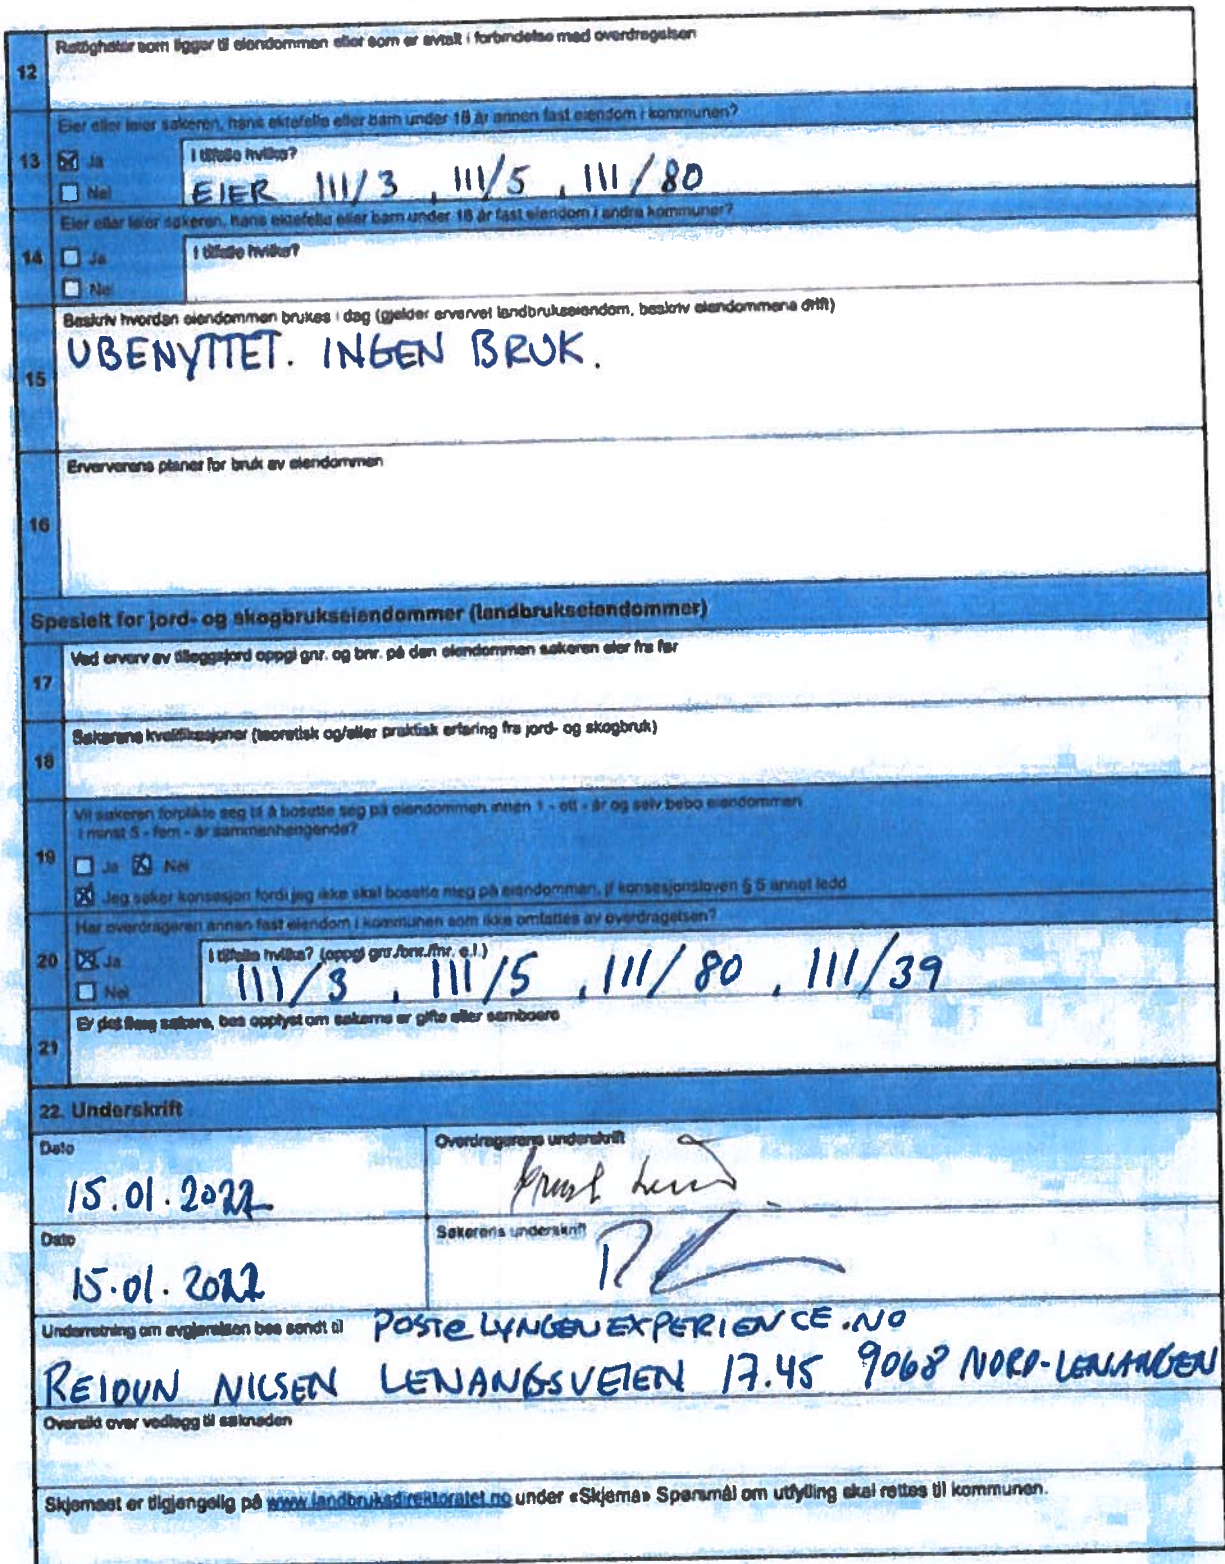 12 Rettigheter som ligger til eiendommen eller som er avtalt i forbindelse med overdragelsen
Eier eller leier søkeren, hans ektefelle eller barn under 18 år annen fast eiendom i kommunen?
13 Ja
I tilfelle hvilke?
Nei
EIER 111/3 , 111/5 , 111/80
Eier eller leier søkeren, hans ektefelle eller barn under 18 år fast eiendom i andre kommuner?
14 Ja
I tilfelle hvilke?
Nei
Beskriv hvordan eiendommen brukes i dag (gjelder ervervet landbrukseiendom, beskriv eiendommens drift)
15 UBENYTTET. INGEN BRUK.
Erververens planer for bruk av eiendommen
16
Spesielt for jord- og skogbrukseiendommer (landbrukseiendommer)
Ved erverv av tilleggsjord oppgi gnr. og bnr. på den eiendommen søkeren eier fra før
17
Søkerens kvalifikasjoner (teoretisk og/eller praktisk erfaring fra jord- og skogbruk)
18
Vil søkeren forplikte seg til å bosette seg på eiendommen innen 1 - ett - år og selv bebo eiendommen
i minst 5 - fem - år sammenhengende?
19 Ja Nei
Jeg søker konsesjon fordi jeg ikke skal bosette meg på eiendommen, jf konsesjonsloven § 5 annet ledd
Har overdrageren annen fast eiendom i kommunen som ikke omfattes av overdragelsen?
20 Ja
I tilfelle hvilke? (oppgi gnr./bnr./fnr. e.l.)
Nei
111/3 , 111/5 , 111/80 , 111/39
Er det flere søkere, bes opplyst om søkerne er gifte eller samboere
21
22. Underskrift
Dato
Overdragerens underskrift
15.01.2022
Dato
Søkerens underskrift
15.01.2022
Underretning om avgjørelsen bes sendt til POST@LYNGENEXPERIENCE.NO
REIDUN NILSEN LENANGSVEIEN 17.45 9068 NORD-LENANGEN
Oversikt over vedlegg til søknaden
Skjemaet er tilgjengelig på www.landbruksdirektoratet.no under «Skjema» Spørsmål om utfylling skal rettes til kommunen.